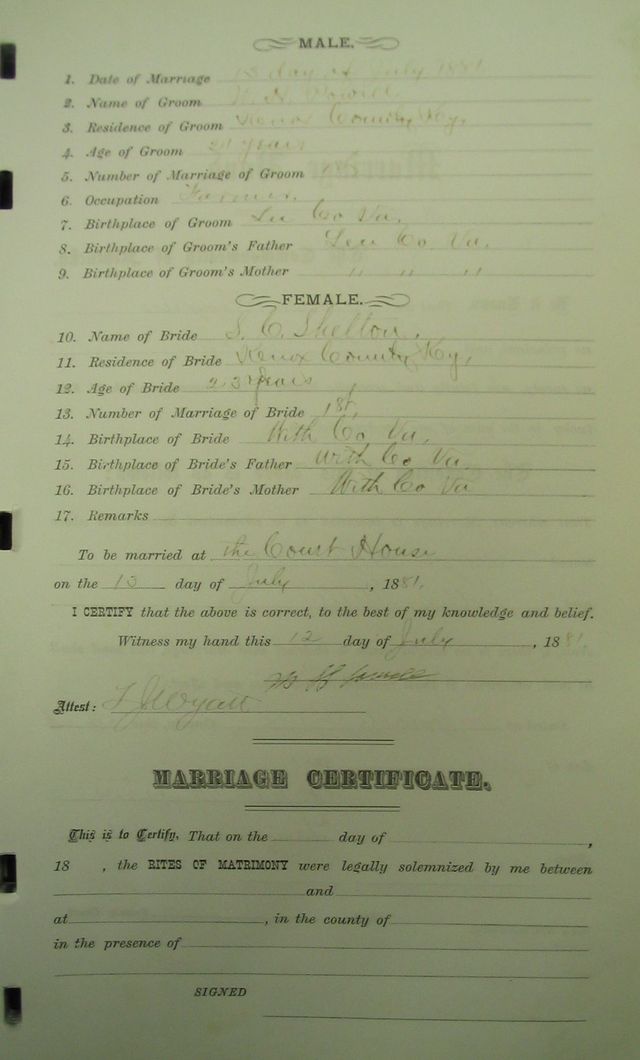 MALE.
1. Date of Marriage 13 day of July 1881
2. Name of Groom
3. Residence of Groom Knox County Ky,
4. Age of Groom years
5. Number of Marriage of Groom
6. Occupation Farmer.
7. Birthplace of Groom Lee Co Va.
8. Birthplace of Groom's Father Lee Co. Va.
9. Birthplace of Groom's Mother " " "
FEMALE.
10. Name of Bride S. E. Shelton.
11. Residence of Bride Knox County Ky,
12. Age of Bride 23 years
13. Number of Marriage of Bride 1st,
14. Birthplace of Bride With Co Va,
15. Birthplace of Bride's Father With Co Va
16. Birthplace of Bride's Mother With Co Va
17. Remarks
To be married at the Court House
on the 13 day of July, 1881.
I CERTIFY that the above is correct, to the best of my knowledge and belief.
Witness my hand this 12 day of July, 1881
Attest: Wyatt
MARRIAGE CERTIFICATE.
This is to Certify, That on the day of ,
18 , the RITES OF MATRIMONY were legally solemnized by me between
and
at , in the county of
in the presence of
SIGNED